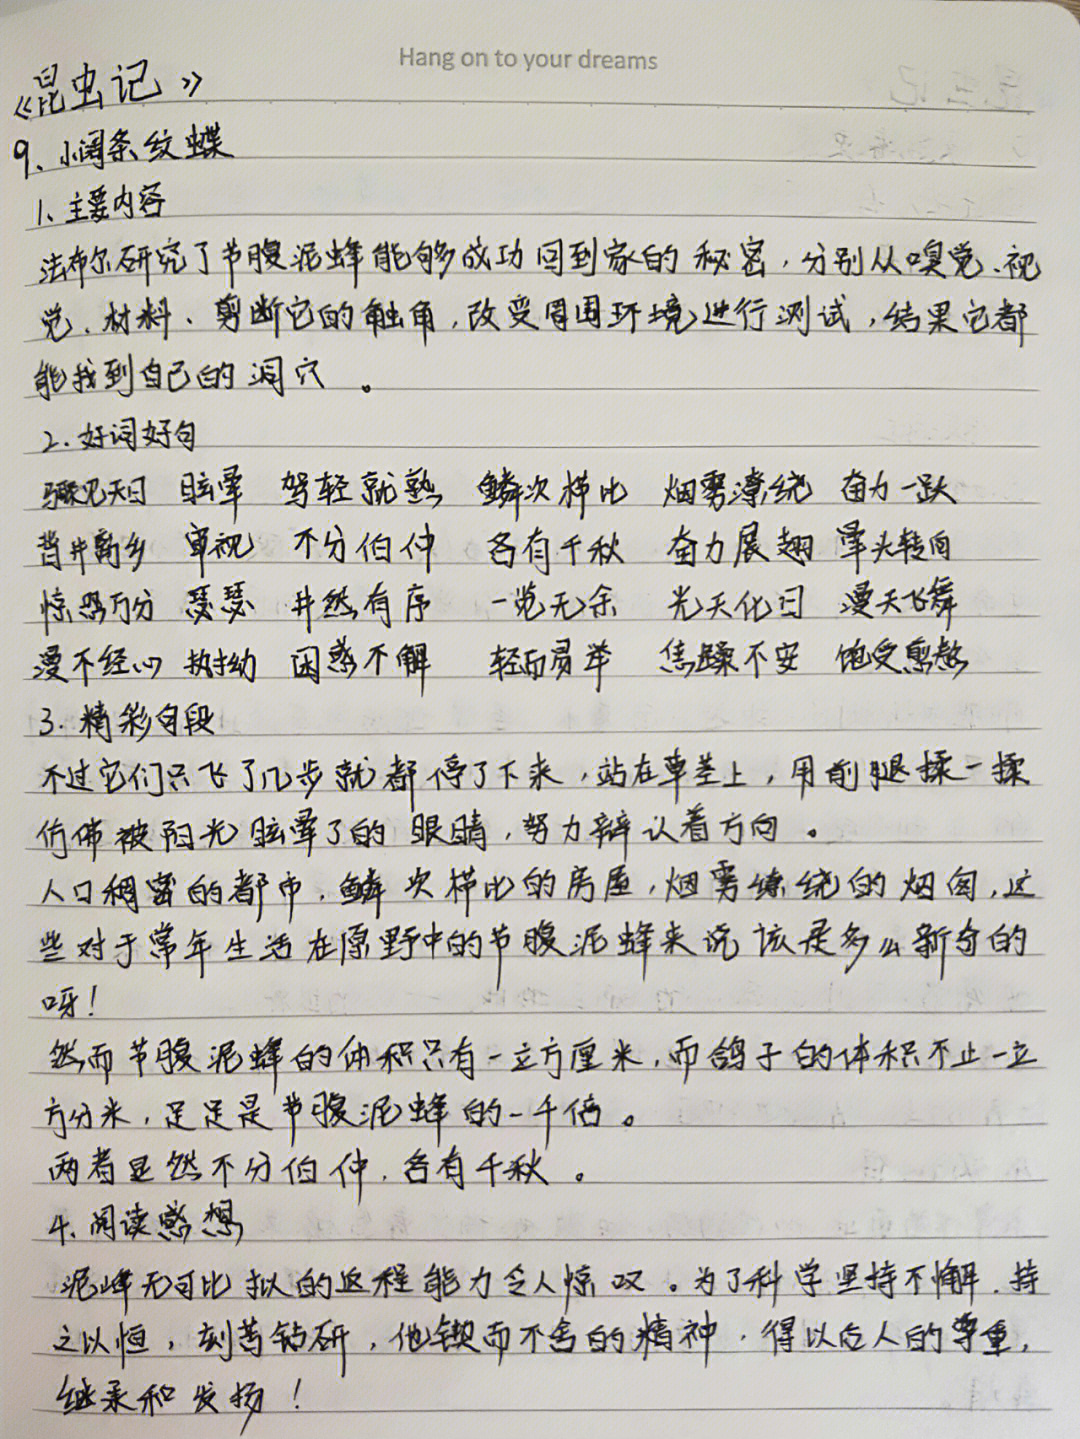 Hang on to your dreams
《昆虫记》
9、小阔条纹蝶
1、主要内容
法布尔研究了节腹泥蜂能够成功回到家的秘密，分别从嗅觉、视
觉、材料、剪断它的触角，改变周围环境进行测试，结果它都
能找到自己的洞穴。
2.好词好句
骤见天日 眩晕 驾轻就熟 鳞次栉比 烟雾潦绕 奋力一跃
背井离乡 审视 不分伯仲 各有千秋 奋力展翅 晕头转向
惊恐万分 瑟瑟 井然有序 一览无余 光天化日 漫天飞舞
漫不经心 执拗 困惑不解 轻而易举 焦躁不安 饱受煎熬
3.精彩句段
不过它们只飞了几步就都停了下来，站在草茎上，用前腿揉一揉
仿佛被阳光眩晕了的眼睛，努力辩认着方向。
人口稠密的都市，鳞次栉比的房屋，烟雾缭绕的烟囱，这
些对于常年生活在原野中的节腹泥蜂来说该是多么新奇的
呀！
然而节腹泥蜂的体积只有一立方厘米，而鸽子的体积不止一立
方分米，足足是节腹泥蜂的一千倍。
两者显然不分伯仲，各有千秋。
4.阅读感想
泥蜂无可比拟的返程能力令人惊叹。为了科学坚持不懈、持
之以恒，刻苦钻研，他锲而不舍的精神，得以后人的尊重，
继承和发扬！